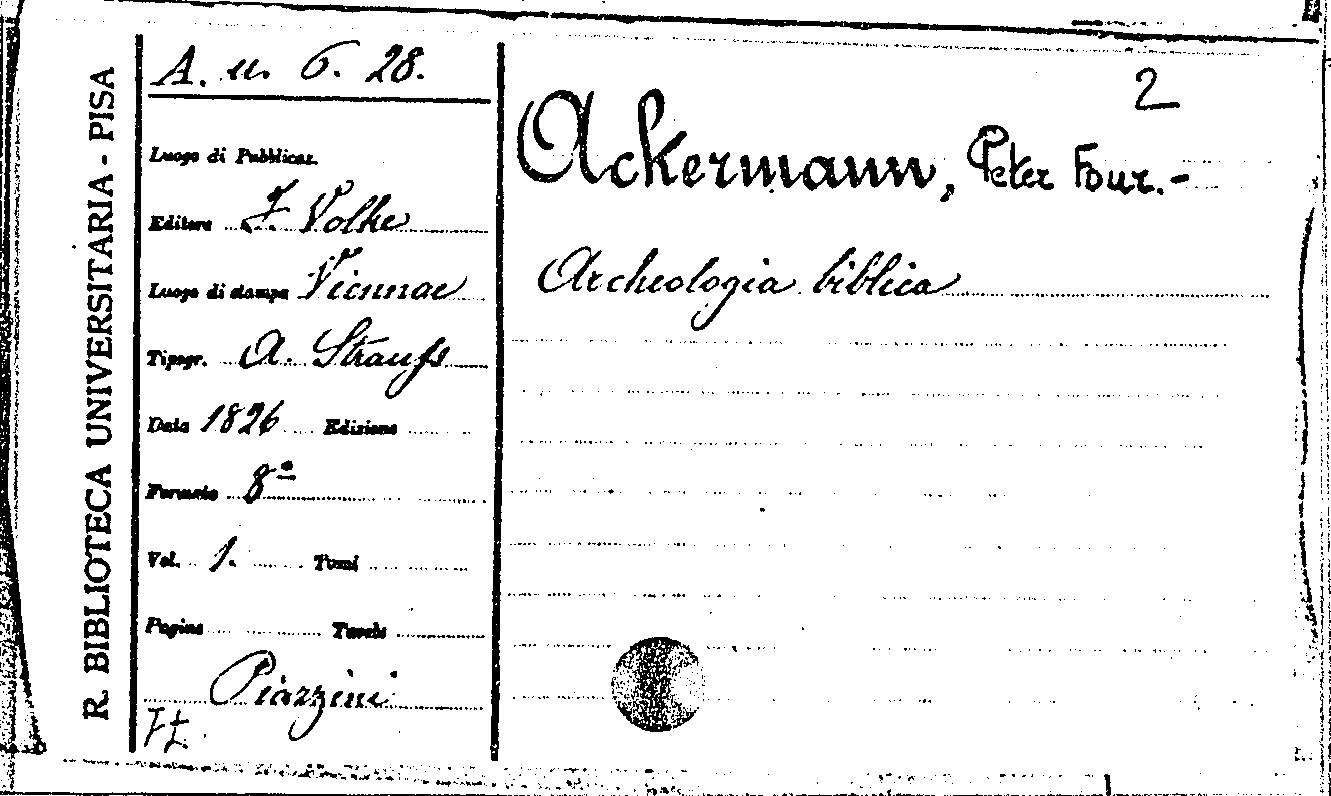 R. BIBLIOTECA UNIVERSITARIA - PISA
A. u. 6. 28.
Luogo di Pubblicaz.
Editore F. Volke
Luogo di stampa Viennae
Tipogr. A. Strauſs
Data 1826 Edizione
Formato 8º
Vol. 1. Tomi
Pagine Tavole
Piazzini
2
Ackermann, Peter Four.-
Archeologia biblica